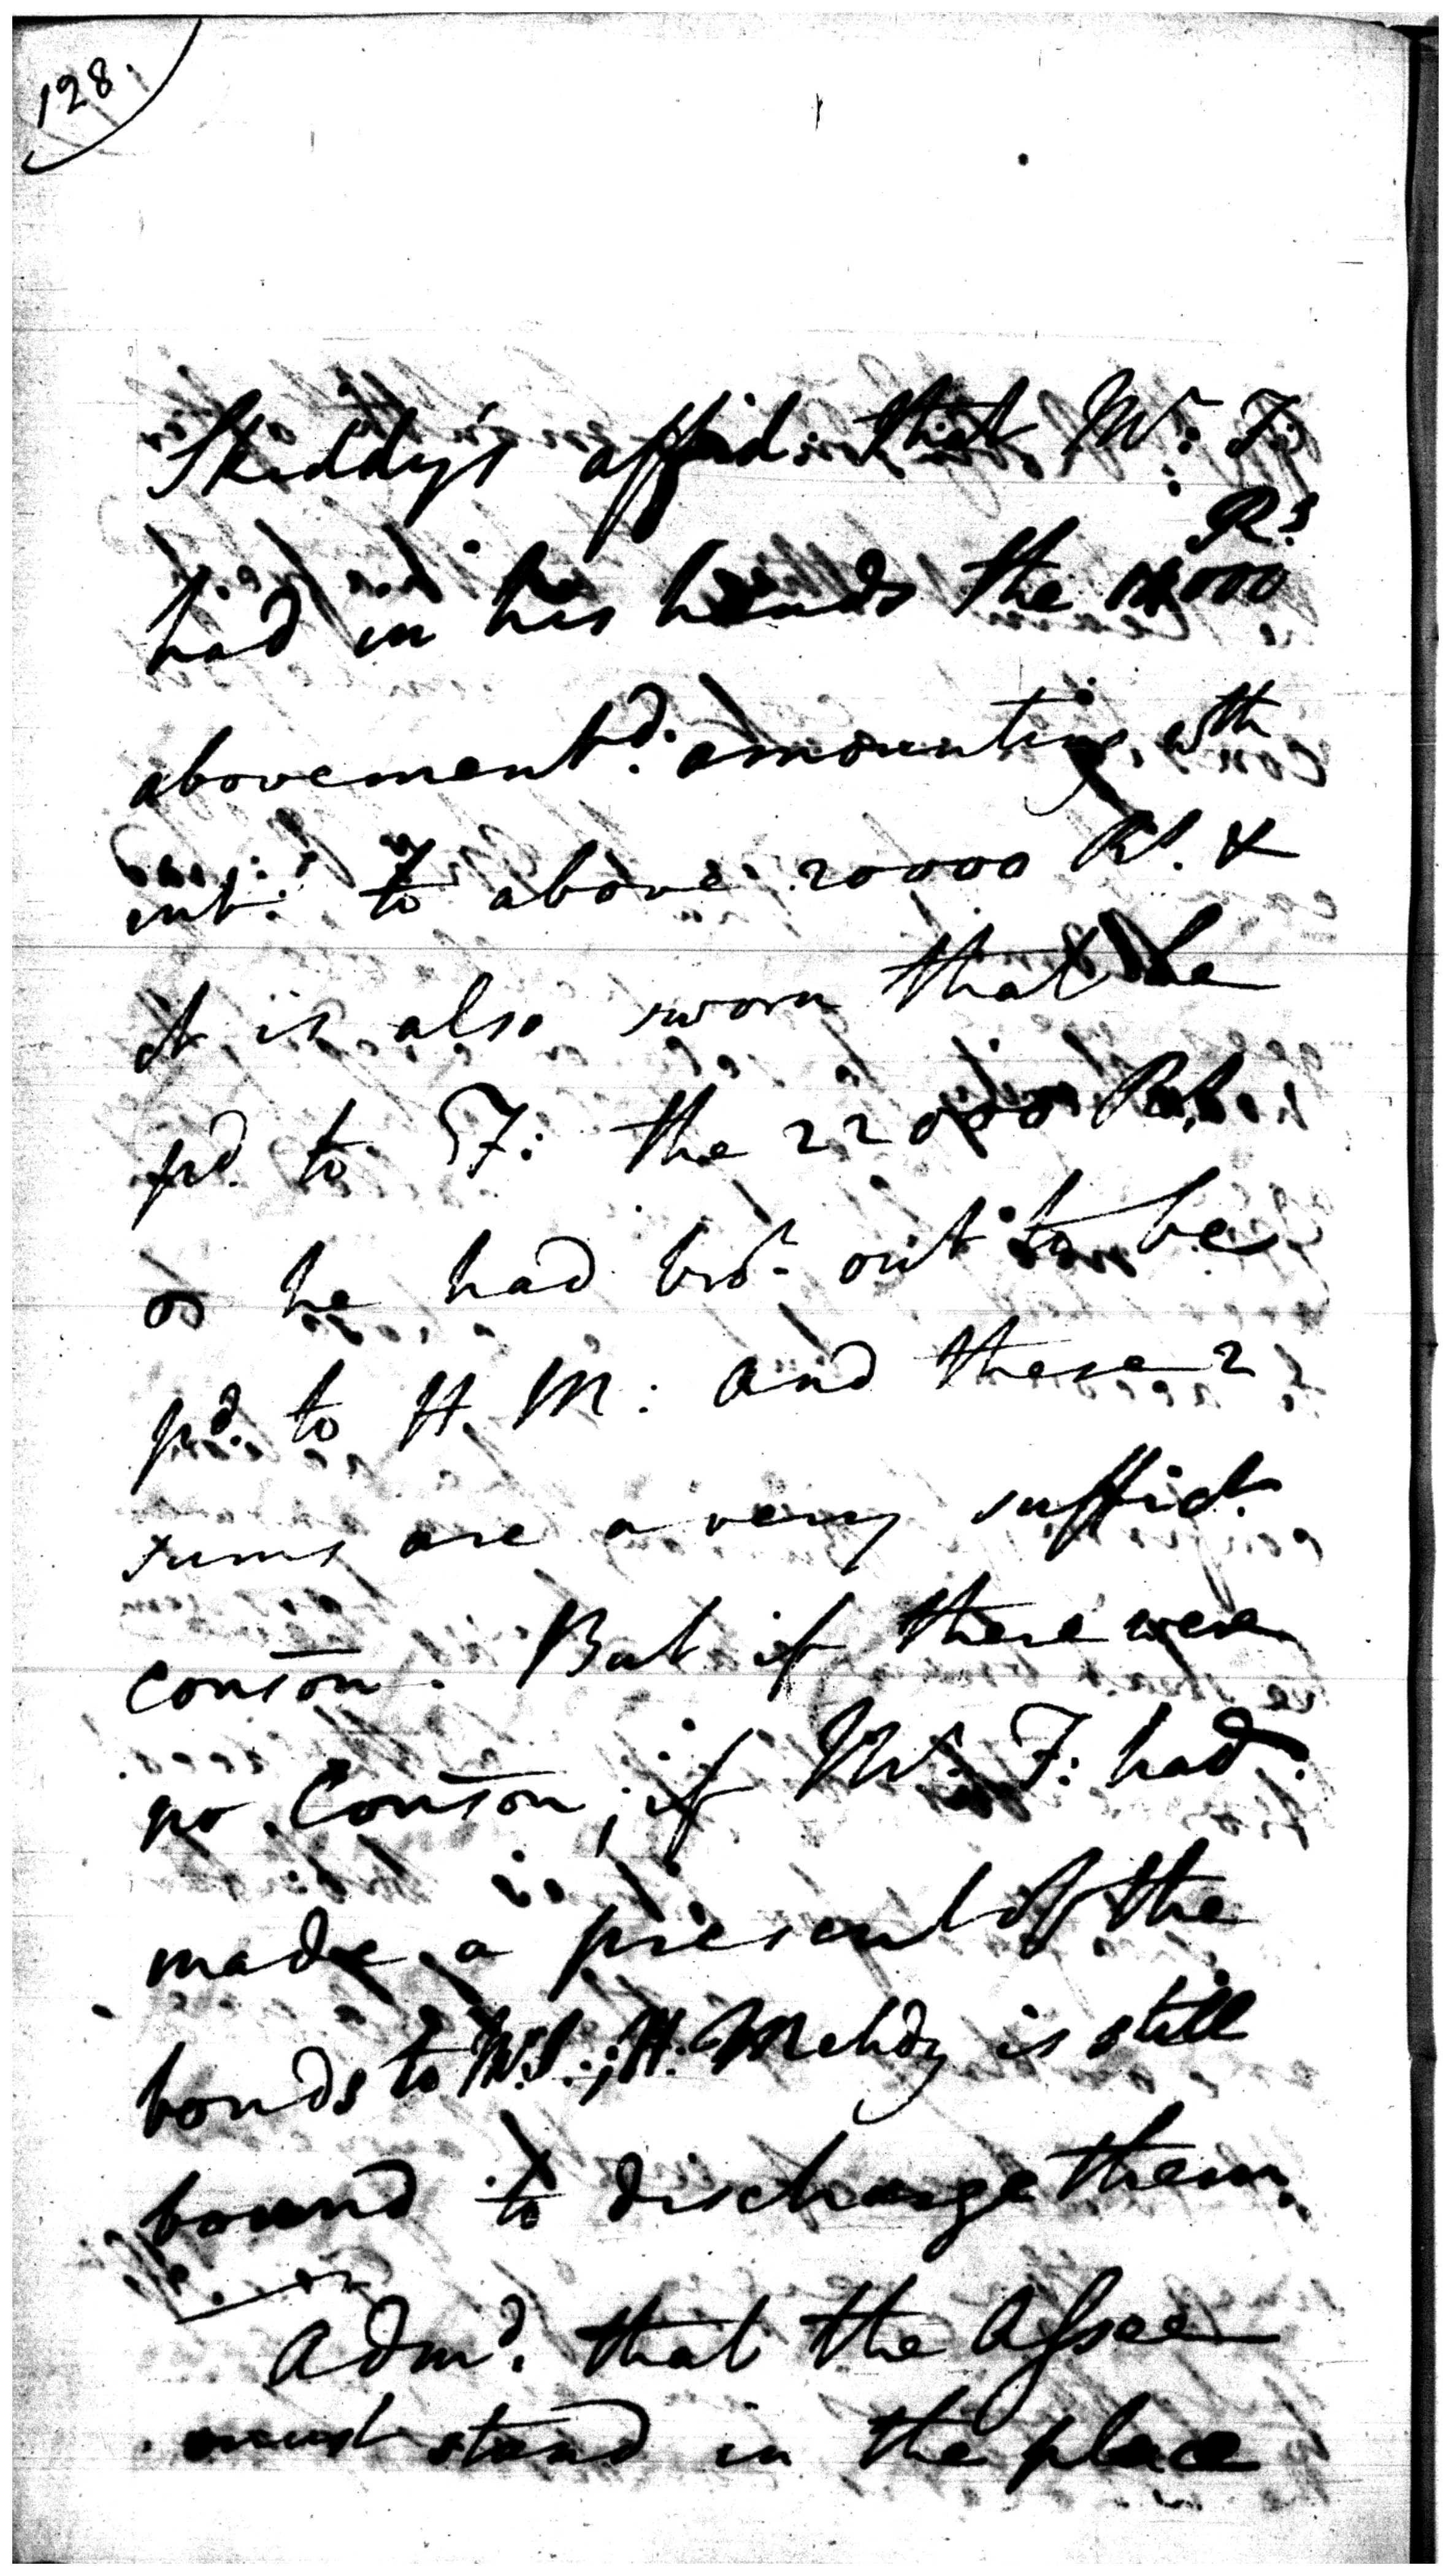 128.
Skiddy's affid: that Mr. F:
had in his hands the 14000 Rs
abovement'd. amounting wth
int: to above 20000 Rs. &
it is also sworn that he
pd. to F: the 22000 Rs.
he had brot. out to be
pd. to H. M: and these 2
sums are a very suffict.
conson. But if there were
no Conson; if Mr. F: had
made a present of the
bonds to Mr. S.; H. Mehdy is still
bound to discharge them.
Admd. that the Assee
must stand in the place